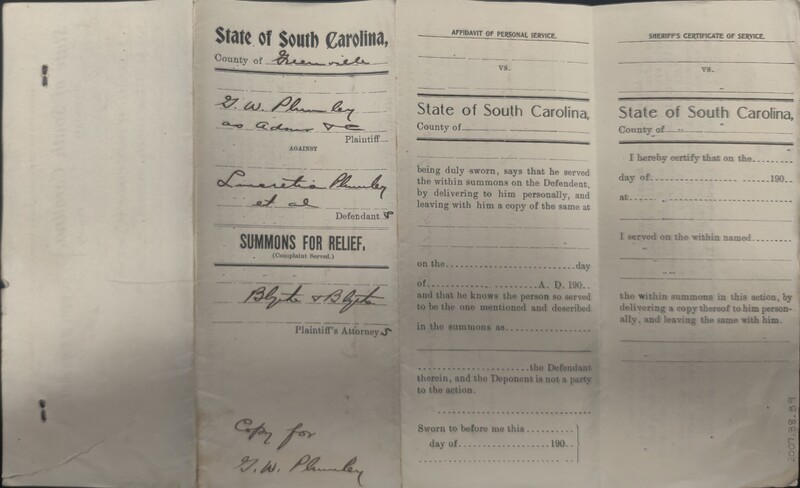 State of South Carolina,
County of Greenville
G. W. Plumley
as Admr & C
Plaintiff
AGAINST
Lucretia Plumley
et al
Defendant s
SUMMONS FOR RELIEF,
(Complaint Served.)
Blythe & Blythe
Plaintiff's Attorney s
Copy for
G. W. Plumley
AFFIDAVIT OF PERSONAL SERVICE.
VS.
State of South Carolina,
County of
being duly sworn, says that he served
the within summons on the Defendant,
by delivering to him personally, and
leaving with him a copy of the same at
on the day
of A. D. 190
and that he knows the person so served
to be the one mentioned and described
in the summons as
the Defendant
therein, and the Deponent is not a party
to the action.
Sworn to before me this
day of 190
SHERIFF'S CERTIFICATE OF SERVICE.
VS.
State of South Carolina,
County of
I hereby certify that on the
day of 190
at
I served on the within named
the within summons in this action, by
delivering a copy thereof to him person-
ally, and leaving the same with him.
2007.38.89